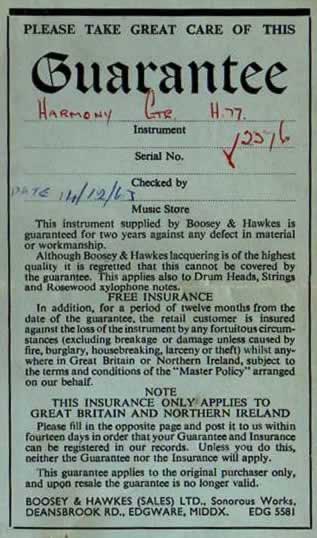 PLEASE TAKE GREAT CARE OF THIS
Guarantee
HARMONY GTR. H.77.
Instrument
Serial No.
Checked by
DATE 14/12/63
Music Store
This instrument supplied by Boosey & Hawkes is
guaranteed for two years against any defect in material
or workmanship.
Although Boosey & Hawkes lacquering is of the highest
quality it is regretted that this cannot be covered by
the guarantee. This applies also to Drum Heads, Strings
and Rosewood xylophone notes.
FREE INSURANCE
In addition, for a period of twelve months from the
date of the guarantee, the retail customer is insured
against the loss of the instrument by any fortuitous circum-
stances (excluding breakage or damage unless caused by
fire, burglary, housebreaking, larceny or theft) whilst any-
where in Great Britain or Northern Ireland, subject to
the terms and conditions of the "Master Policy" arranged
on our behalf.
NOTE
THIS INSURANCE ONLY APPLIES TO
GREAT BRITAIN AND NORTHERN IRELAND
Please fill in the opposite page and post it to us within
fourteen days in order that your Guarantee and Insurance
can be registered in our records. Unless you do this,
neither the Guarantee nor the Insurance will apply.
This guarantee applies to the original purchaser only,
and upon resale the guarantee is no longer valid.
BOOSEY & HAWKES (SALES) LTD., Sonorous Works,
DEANSBROOK RD., EDGWARE, MIDDX. EDG 5581